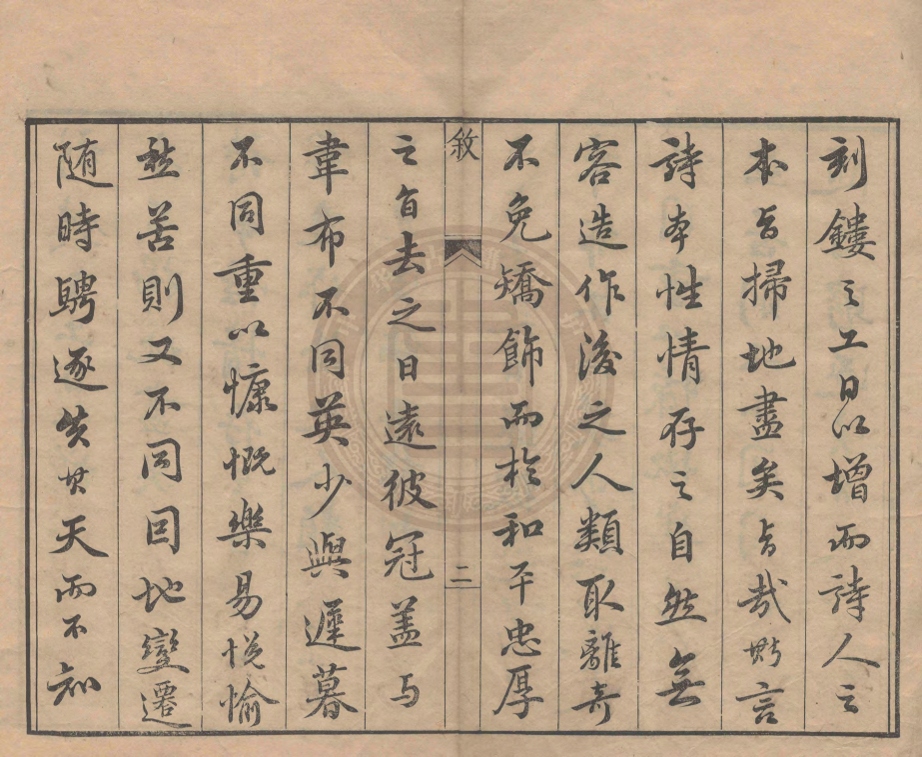 刻鏤之工日以增而詩人之
本旨掃地盡矣旨哉斯言
詩本性情存之自然無
容造作後之人類取離奇
不免矯飾而於和平忠厚
敘
二
之旨去之日遠彼冠蓋与
韋布不同英少與遲暮
不同重以慷慨樂易悅愉
愁苦則又不同因地變遷
随時騁逐失其天而不知